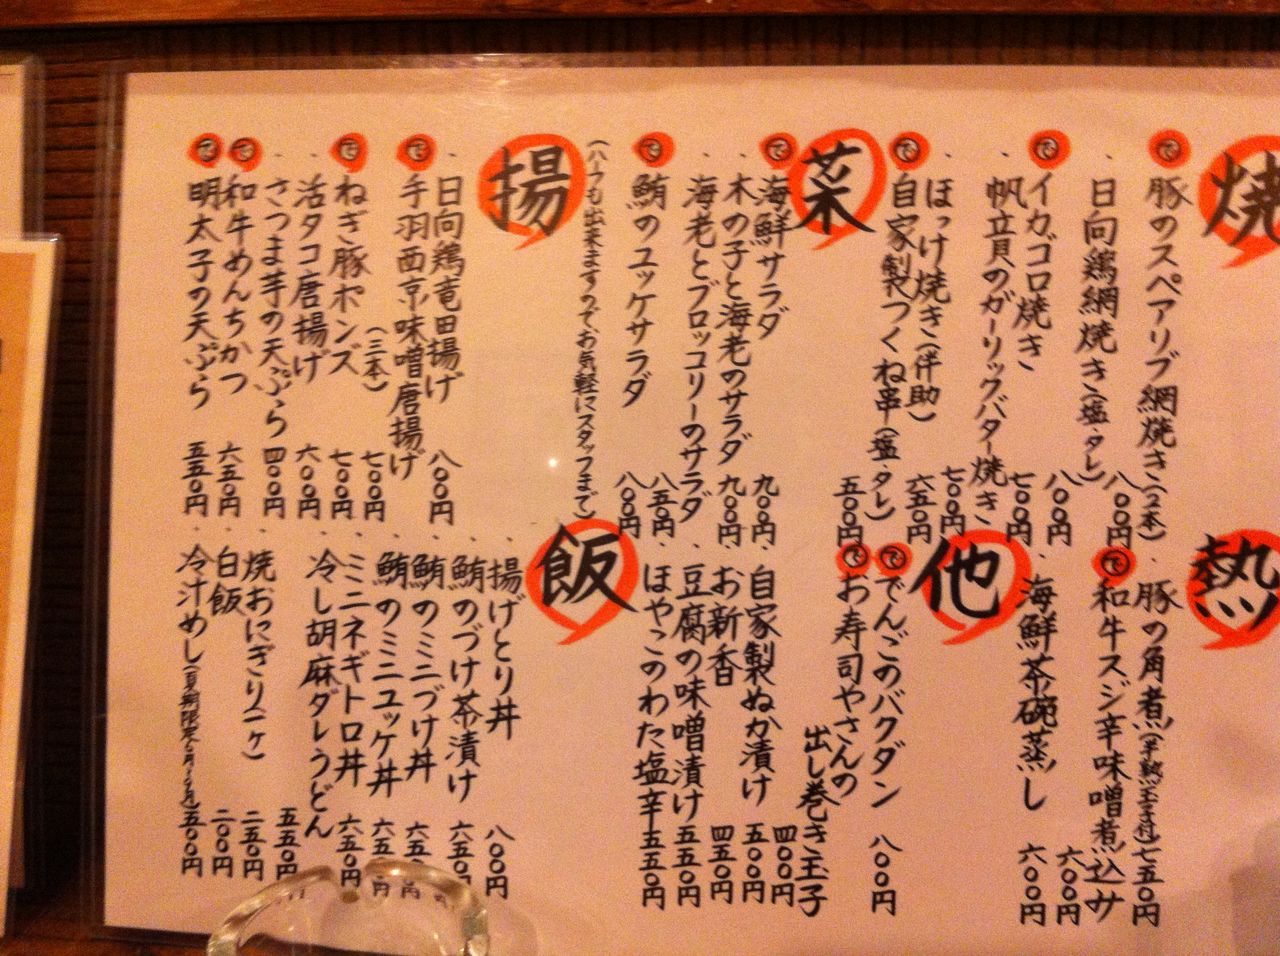 焼
で 豚のスペアリブ網焼き(2本) 八〇〇円
・日向鶏網焼き(塩・タレ) 八〇〇円
で イカゴロ焼き 七〇〇円
・帆立貝のガーリックバター焼き 七〇〇円
・ほっけ焼き(伴助) 六五〇円
で 自家製つくね串(塩・タレ) 五〇〇円
菜
で 海鮮サラダ 九〇〇円
・木の子と海老のサラダ 九〇〇円
・海老とブロッコリーのサラダ 八五〇円
で 鮪のユッケサラダ 八〇〇円
(ハーフも出来ますので、お気軽にスタッフまで)
揚
・日向鶏竜田揚げ 八〇〇円
で 手羽西京味噌唐揚げ(三本) 七〇〇円
で ねぎ豚ポンズ 七〇〇円
・活タコ唐揚げ 六〇〇円
・さつま芋の天ぷら 四〇〇円
で 和牛めんちかつ 六五〇円
で 明太子の天ぷら 五五〇円
熱
・豚の角煮(半熟玉子付) 七五〇円
で 和牛スジ辛味噌煮込み 六〇〇円
・海鮮茶碗蒸し 六〇〇円
他
で でんごのバクダン 八〇〇円
で お寿司やさんの出し巻き玉子 四〇〇円
・自家製ぬか漬け 五〇〇円
・お新香 四五〇円
・豆腐の味噌漬け 五五〇円
・ほやこのわた塩辛 五五〇円
飯
・揚げとり丼 八〇〇円
・鮪のづけ茶漬け 六五〇円
・鮪のミニづけ丼 六五〇円
・鮪のミニユッケ丼 六五〇円
・ミニネギトロ丼 六五〇円
・冷し胡麻ダレうどん 五五〇円
・焼おにぎり(二ケ) 二五〇円
・白飯 二〇〇円
・冷汁めし(夏期限定6月~9月) 五〇〇円